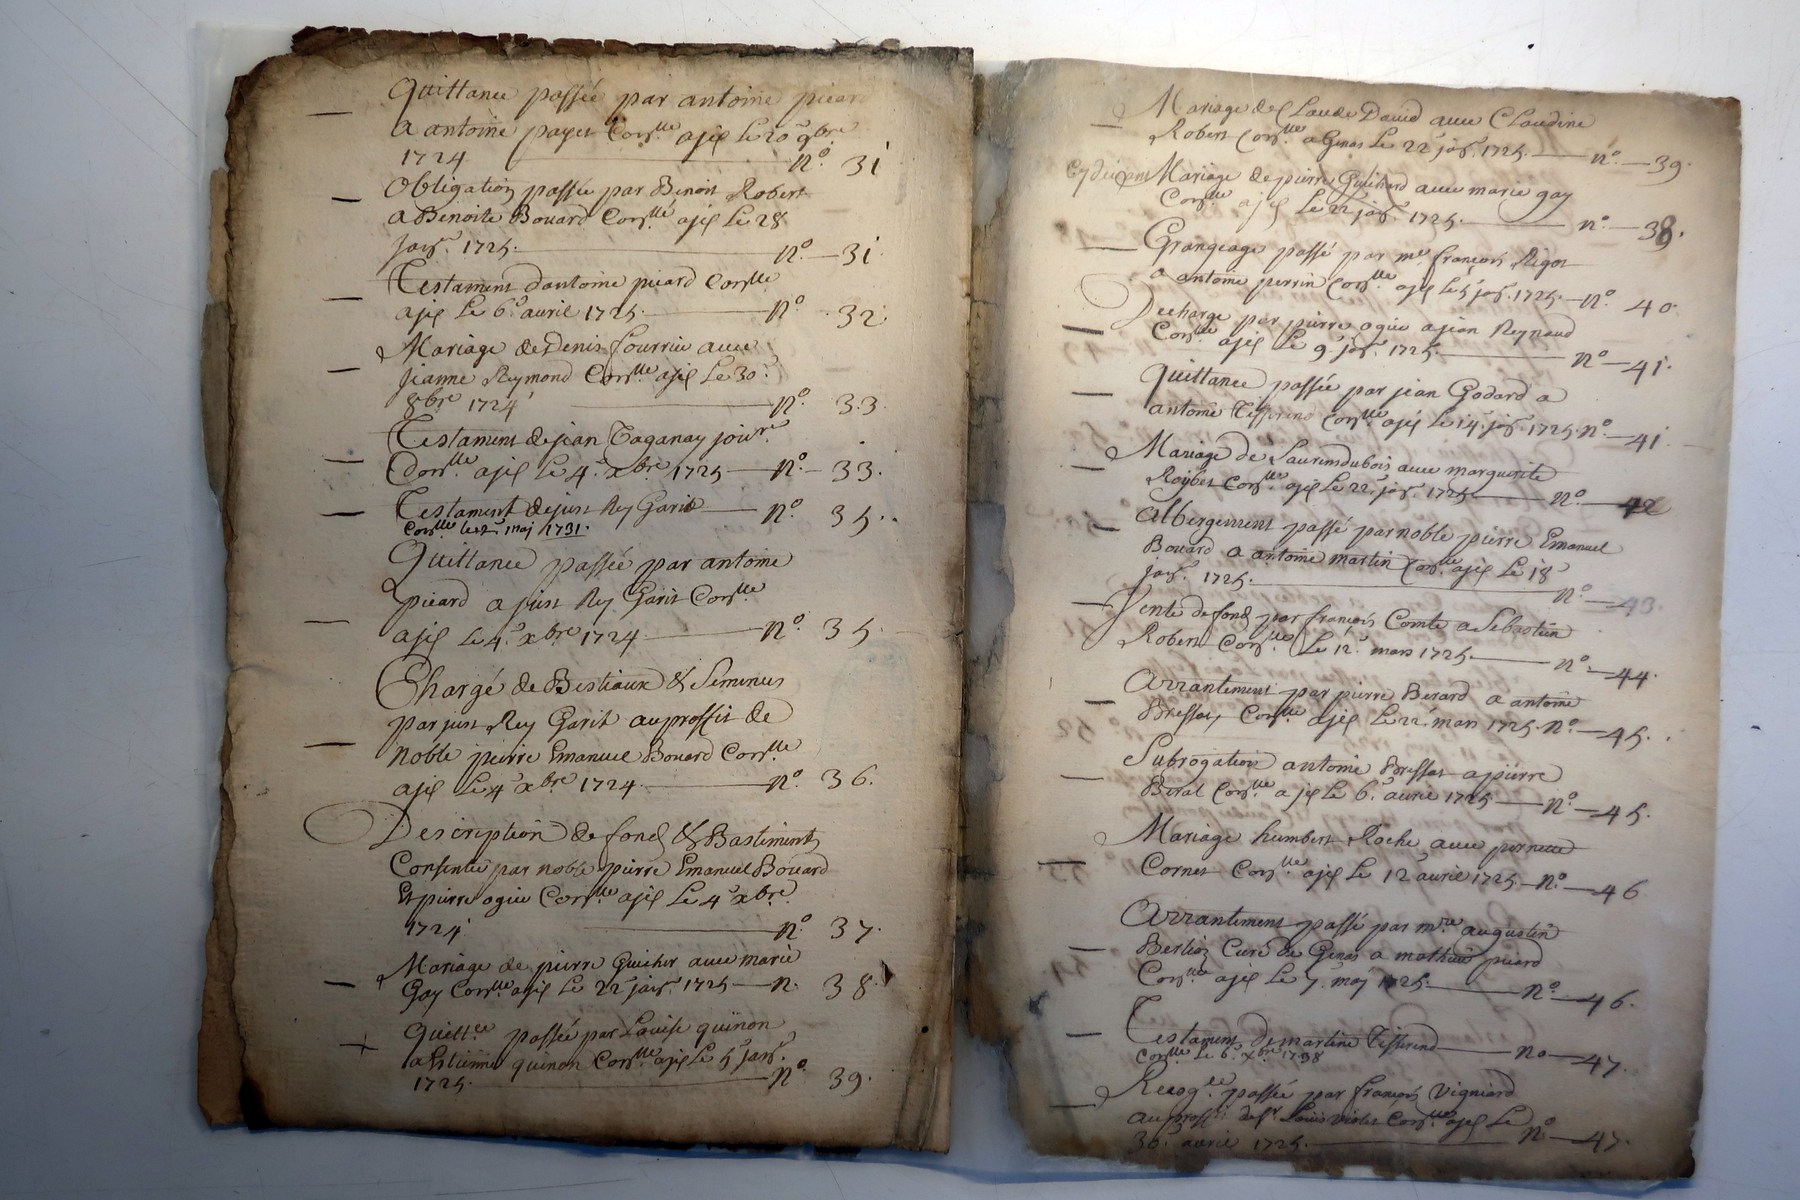 Quittance passée par antoine picard
a antoine payet Con^lle ajei Le 20 9bre
1724 n.° 31
Obligation passée par Benoit Robert
a Benoite Bouard Con^lle ajei Le 28
janv.r 1725. n.° 31
Testament dantoine picard Con^lle
ajei Le 6.e avril 1725 n.° 32
Mariage de Denis fourrier avec
jeanne Reymond Con^lle ajei Le 30.
8bre 1724 n.° 33
Testament de jean Taganay
Con^lle ajei Le 4.e xbre 1725 n.° 33.
Testament de just Rey Garit n.° 35.
Con^lle le 2 maj 1731.
Quittance passée par antoine
picard a just Rey Garit Con^lle
ajei Le 4.e xbre 1724 n.° 35
Chargé de Bestiaux & Semines
par just Rey Garit au proffit de
noble peirre Emanuel Bouard Con^lle
ajei Le 4 xbre 1724 n.° 36.
Description de fond & Bastiments
Consentie par noble pierre Emanuel Bouard
Et pierre ogier Con^lle ajei Le 4.e xbre
1724 n.° 37.
Mariage de pierre avec marie
Gay Con^lle ajei Le 22 janv.r 1725 n. 38
Quitt.ce passée par Louise quinon
a Estienne quinon Con^lle ajei Le 5 janv.r
1725. n.° 39.
Mariage de Claude David avec Claudine
Robert Con^lle a Genas Le 22 janv.r 1725 n.° 39.
Mariage de pierre Guichard avec marie gay
Con^lle ajei Le 22 janv.r 1725. n.° 38.
Grangeage passé par m.e françois Rigot
a antoine perrin Con^lle ajei Le 5 janv.r 1725 n.° 40.
Decharge par pierre ogier a jean Reynaud
Con^lle ajei Le 9.e janv.r 1725 n.° 41.
Quittance passée par jean Godard a
antoine Tisserend Con^lle ajei Le 14.e janv.r 1725. n.° 41
Mariage de Laurens dubois avec marguerite
Roybet Con^lle ajei Le 22.e janv.r 1725 n.° 42
Albergement passé par noble pierre Emanuel
Bouard a antoine martin Con^lle ajei Le 18
janv.r 1725. n.° 43.
Vente de fond par françois Comte a Sebastien
Robert Con^lle Le 12.e mars 1725 n.° 44.
Arrantement par pierre Berard a antoine
Bressat Con^lle ajei Le 22.e mars 1725. n.° 45.
Subrogation antoine Bressat a pierre
Berat Con^lle ajei Le 6.e avril 1725 n.° 45.
Mariage humbert Roche avec pernette
Cornet Con^lle ajei Le 12 avril 1725 n.° 46
Arrantement passé par m.re augustin
Berlioz Curé de Genas a mathieu picard
Con^lle ajei Le 7.e maj 1725. n.° 46.
Testament de martine Tisserend no 47.
Con^lle Le 6.e xbre 1738
Recog.ce passée par françois Vigniard
au proffit de s.r Louis violet Con^lle ajei Le
30.e avril 1725. n.° 47.